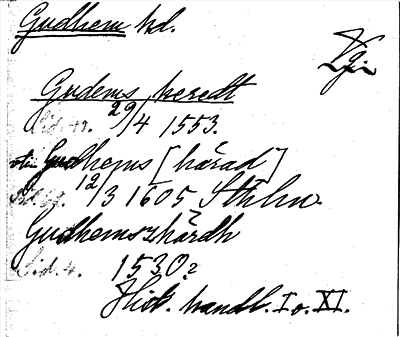 Gudhem hd.
Vg.
Gudems heredt
29/4 1553.
Gudhems [härad]
12/3 1605 Sthlm.
Gudhems härdh
1530.
Hist. handl. I o. XI.